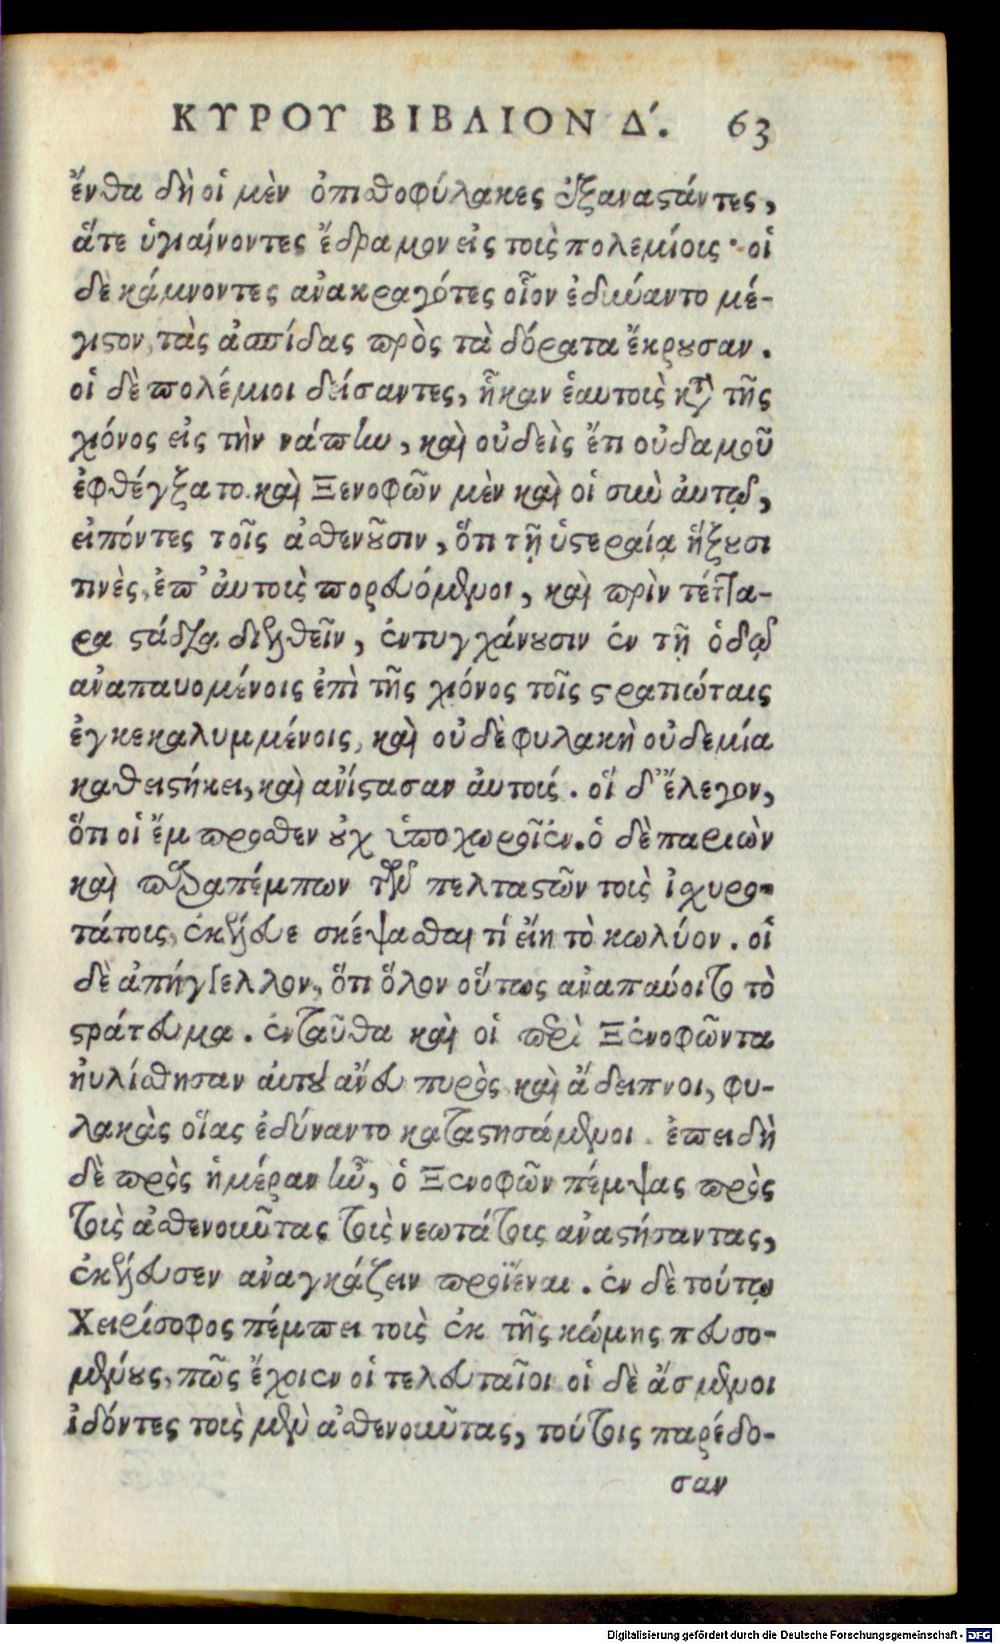 ΚΥΡΟΥ ΒΙΒΛΙΟΝ Δ´. 63
ἔνθα δὴ οἱ μὲν ὀπιθοφύλακες ἐξαναστάντες,
ἅτε ὑγιαίνοντες ἔδραμον εἰς τοὺς πολεμίους· οἱ
δὲ κάμνοντες ἀνακραγότες οἷον ἐδύναντο μέ-
γιστον, τὰς ἀσπίδας πρὸς τὰ δόρατα ἔκρουσαν.
οἱ δὲ πολέμιοι δείσαντες, ἧκαν ἑαυτοὺς κατὰ τῆς
χιόνος εἰς τὴν νάπην, καὶ οὐδεὶς ἔτι οὐδαμοῦ
ἐφθέγξατο. καὶ Ξενοφῶν μὲν καὶ οἱ σὺν αὐτῷ,
εἰπόντες τοῖς ἀσθενοῦσιν, ὅτι τῇ ὑστεραίᾳ ἥξουσι
τινὲς, ἐπ' αὐτοὺς πορευόμενοι, καὶ πρὶν τέτταρα-
ρα στάδια διελθεῖν, ἐντυγχάνουσιν ἐν τῇ ὁδῷ
ἀναπαυομένοις ἐπὶ τῆς χιόνος τοῖς στρατιώταις
ἐγκεκαλυμμένοις, καὶ οὐδὲ φυλακὴ οὐδεμία
καθειστήκει, καὶ ἀνίστασαν αὐτούς. οἱ δ' ἔλεγον,
ὅτι οἱ ἔμπροσθεν οὐχ ὑποχωροῖεν. ὁ δὲ παριὼν
καὶ παραπέμπων τῶν πελταστῶν τοὺς ἰσχυρο-
τάτους, ἐκέλευε σκέψασθαι τί εἴη τὸ κωλύον. οἱ
δὲ ἀπήγγελλον, ὅτι ὅλον οὕτως ἀναπαύοιτο τὸ
στράτευμα. ἐνταῦθα καὶ οἱ περὶ Ξενοφῶντα
ηὐλίσθησαν αὐτοῦ ἄνευ πυρὸς καὶ ἄδειπνοι, φυ-
λακὰς οἵας ἐδύναντο καταστησάμενοι. ἐπειδὴ
δὲ πρὸς ἡμέραν ἦν, ὁ Ξενοφῶν πέμψας πρὸς
τοὺς ἀσθενοῦντας τοὺς νεωτάτους ἀναστήσαντας,
ἐκέλευσεν ἀναγκάζειν προϊέναι. ἐν δὲ τούτῳ
Χειρίσοφος πέμπει τοὺς ἐκ τῆς κώμης πευσο-
μένους, πῶς ἔχοιεν οἱ τελευταῖοι. οἱ δὲ ἄσμενοι
ἰδόντες τοὺς μὲν ἀσθενοῦντας, τούτοις παρέδο-
σαν
Digitalisierung gefördert durch die Deutsche Forschungsgemeinschaft - DFG